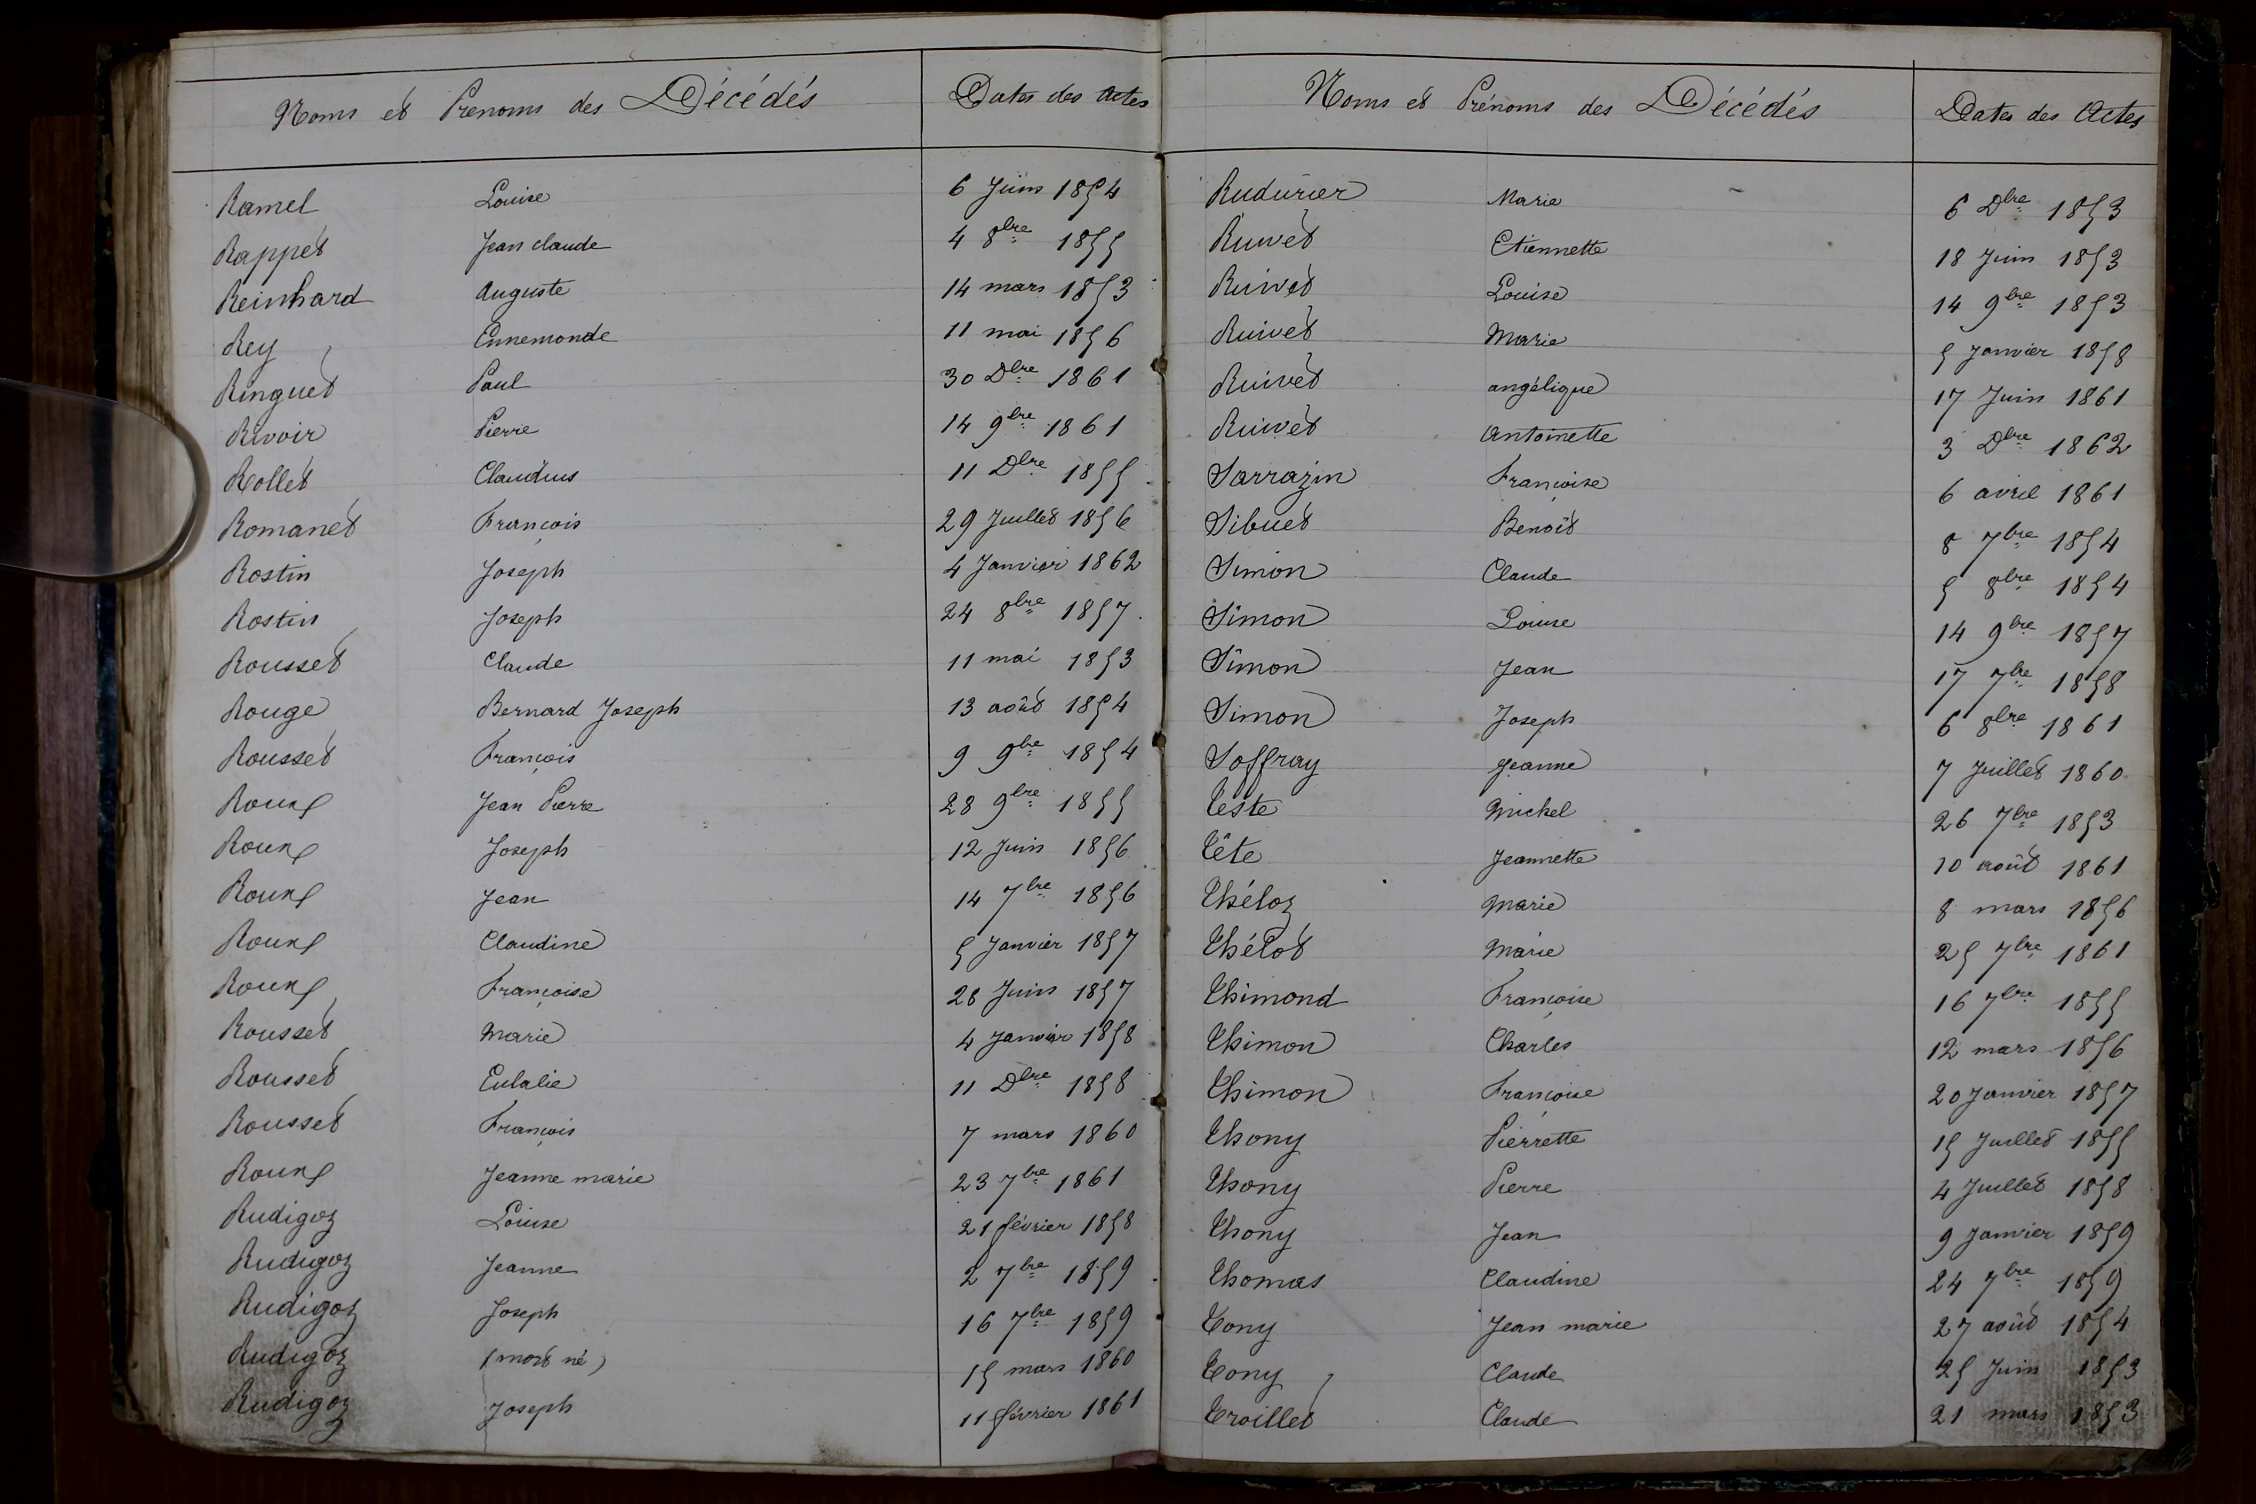 Noms et Prénoms des Décédés Dates des Actes
Ramel Louise 6 Juin 1854
Rappet Jean claude 4 8bre 1855
Reinhard Auguste 14 mars 1853
Rey Ennemonde 11 mai 1856
Ringuet Paul 30 Dbre 1861
Rivoir Pierre 14 9bre 1861
Rollet Claudius 11 Dbre 1855
Romanet François 29 Juillet 1856
Rostin Joseph 4 Janvier 1862
Rostin Joseph 24 8bre 1857
Rousset Claude 11 mai 1853
Rouge Bernard Joseph 13 août 1854
Rousset François 9 9bre 1854
Roux Jean Pierre 28 9bre 1855
Roux Joseph 12 Juin 1856
Roux Jean 14 7bre 1856
Roux Claudine 5 Janvier 1857
Roux Françoise 28 Juin 1857
Rousset Marie 4 Janvier 1858
Rousset Eulalie 11 Dbre 1858
Rousset François 7 mars 1860
Roux Jeanne marie 23 7bre 1861
Rudigoz Louise 21 février 1858
Rudigoz Jeanne 2 7bre 1859
Rudigoz Joseph 16 7bre 1859
Rudigoz (mort né) 15 mars 1860
Rudigoz Joseph 11 février 1861
Noms et Prénoms des Décédés Dates des Actes
Rudurier Marie 6 Dbre 1853
Ruivet Etiennette 18 Juin 1853
Ruivet Louise 14 9bre 1853
Ruivet Marie 5 Janvier 1858
Ruivet angélique 17 Juin 1861
Ruivet Antoinette 3 Dbre 1862
Sarrazin Françoise 6 avril 1861
Sibuet Benoît 8 7bre 1854
Simon Claude 5 8bre 1854
Simon Louise 14 9bre 1857
Simon Jean 17 7bre 1858
Simon Joseph 6 8bre 1861
Soffray Jeanne 7 Juillet 1860
Teste Michel 26 7bre 1853
Tête Jeannette 10 août 1861
Théloz Marie 8 mars 1856
Thélot Marie 25 7bre 1861
Thimond Françoise 16 7bre 1855
Thimon Charles 12 mars 1856
Thimon Françoise 20 Janvier 1857
Thony Pierrette 15 Juillet 1855
Thony Pierre 4 Juillet 1858
Thony Jean 9 Janvier 1859
Thomas Claudine 24 7bre 1859
Tony Jean marie 27 août 1854
Tony Claude 25 Juin 1853
Troillet Claude 21 mars 1853